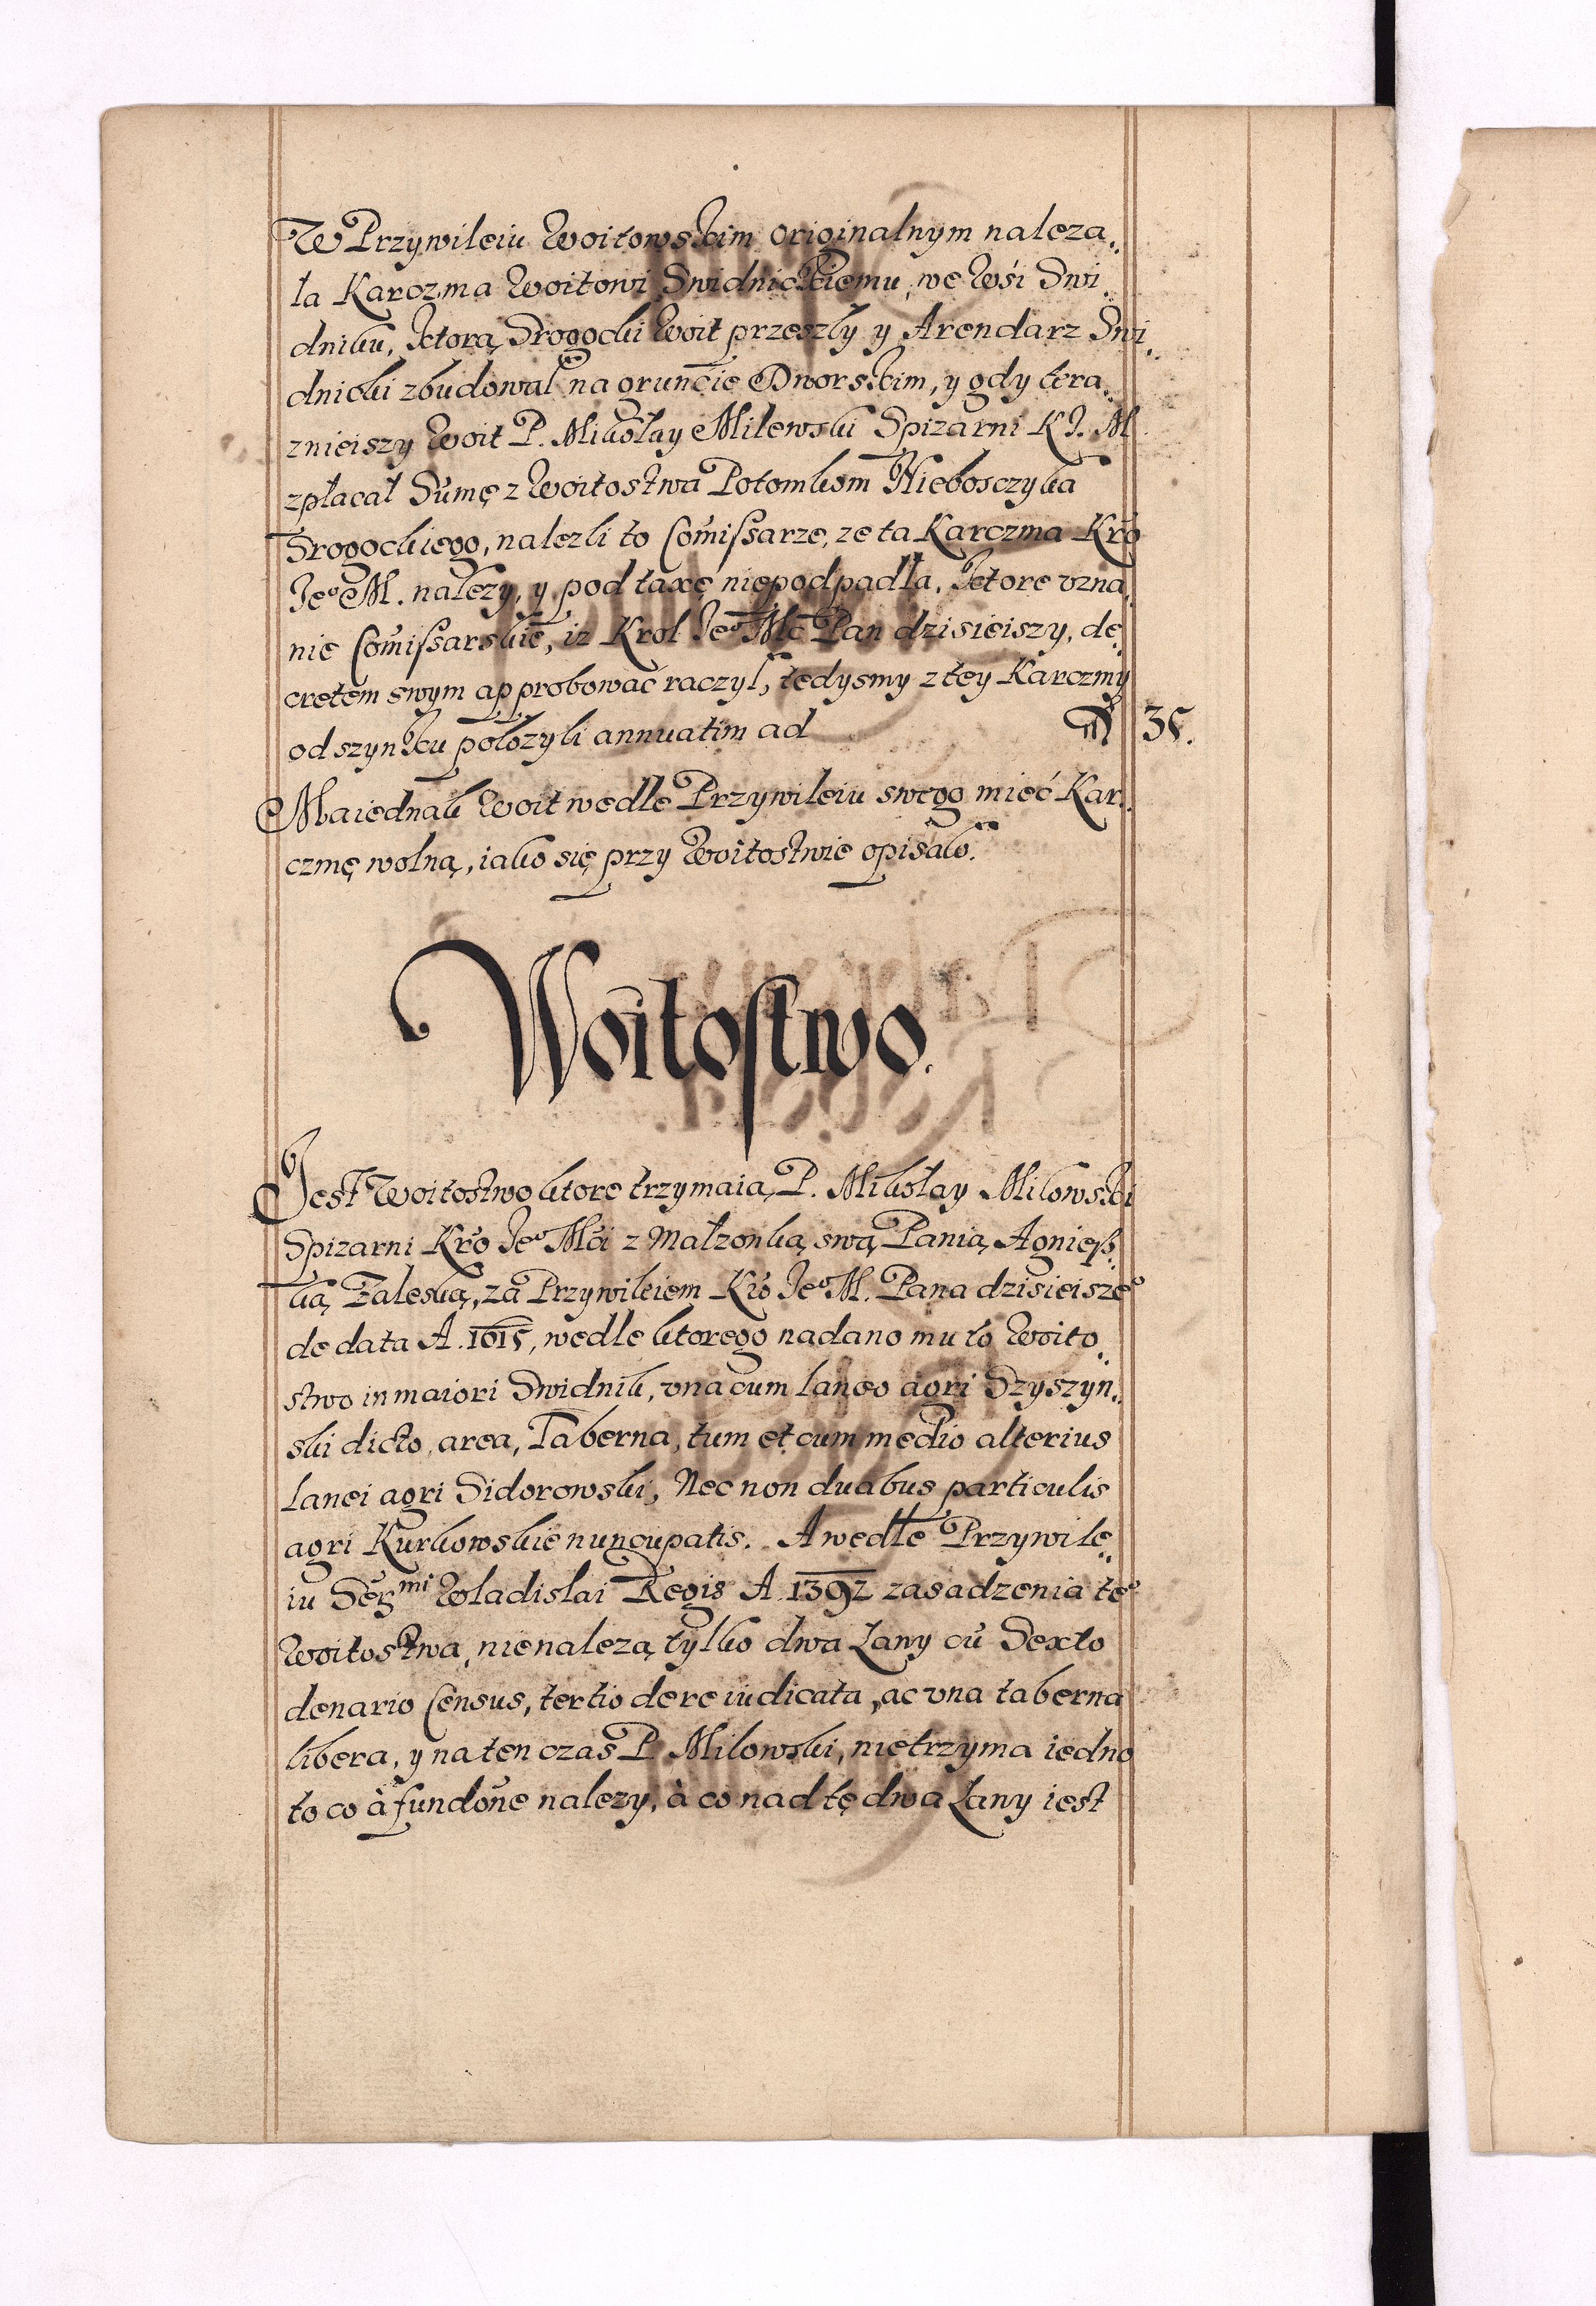 W Przywileiu Woitowskim originalnym naleza„
ła Karczma Woitowi Swidnickiemu, we Wsi Swi„
dniku, ktorą Srogocki Woit przeszły y Arendarz Swi„
dnicki zbudował na gruncie Dworskim, y gdy tera„
znieiszy Woit P. Mikołay Milewski Spizarni K J. M
zpłacał Sumę z Woitostwa Potomkom Nieboszczyka
Srogockiego, nalezli to Comissarze, ze ta Karczma Kro
Jeo M. nalezy, y pod taxę niepodpadła. ktore vzna„
nie Comissarskie, iz Krol Jeo Mc Pan dzisieiszy, de„
cretem swym approbować raczył, tedysmy z tey Karczmy
od szynku połozyli annuatim ad 35.
Ma iednak Woit wedle Przywileiu swego mieć Kar„
czmę wolną, iako się przy Woitostwie opisało.
Woitostwo.
Jest Woitostwo ktore trzymaią P. Mikołay Milowski
Spizarni Kro Jeo Mci z Małzonką swą Panią Agnieß„
ką Zaleską, za Przywileiem Kro Jeo M. Pana dzisieiszeo
de data A. 1615, wedle ktorego nadano mu to Woito„
stwo in maiori Swidnik, vna cum laneo agri Szyszyn„
ski dicto, area, Taberna, tum et cum medio alterius
lanei agri Sidorowski, Nec non duabus particulis
agri Kurkowskie nuncupatis. A wedle Przywile„
iu Sermi Wladislai Regis A. 1392 zasadzenia teo
Woitostwa, nienalezą tylko dwa Łany cu Sexto
denario Census, tertio de re iudicata, ac vna taberna
libera, y na ten czas P. Milowski, nietrzyma iedno
to co à fundone nalezy, à co nad tę dwa Łany iest